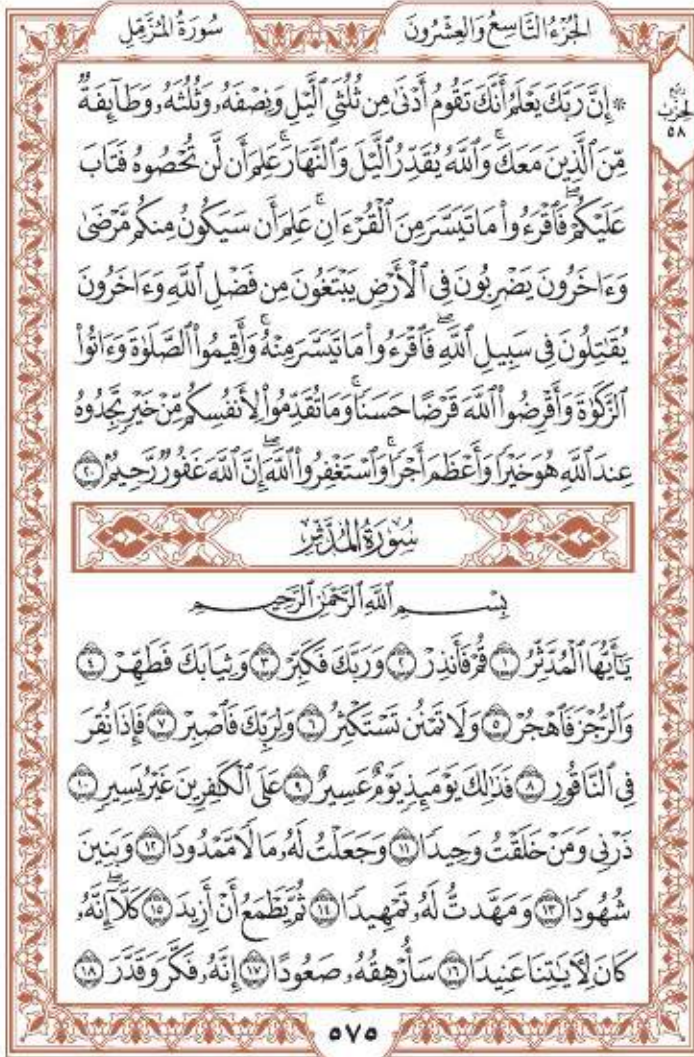 الجُزْءُ التَّاسِعُ وَالعِشْرُونَ
سُورَةُ المُزَّمِّلِ
ربع
الحزب
٥٨
۞ إِنَّ رَبَّكَ يَعْلَمُ أَنَّكَ تَقُومُ أَدْنَىٰ مِن ثُلُثَيِ ٱلَّيْلِ وَنِصْفَهُۥ وَثُلُثَهُۥ وَطَآئِفَةٌ
مِّنَ ٱلَّذِينَ مَعَكَۚ وَٱللَّهُ يُقَدِّرُ ٱلَّيْلَ وَٱلنَّهَارَۚ عَلِمَ أَن لَّن تُحْصُوهُ فَتَابَ
عَلَيْكُمْۖ فَٱقْرَءُوا۟ مَا تَيَسَّرَ مِنَ ٱلْقُرْءَانِۚ عَلِمَ أَن سَيَكُونُ مِنكُم مَّرْضَىٰ
وَءَاخَرُونَ يَضْرِبُونَ فِى ٱلْأَرْضِ يَبْتَغُونَ مِن فَضْلِ ٱللَّهِ وَءَاخَرُونَ
يُقَٰتِلُونَ فِى سَبِيلِ ٱللَّهِۖ فَٱقْرَءُوا۟ مَا تَيَسَّرَ مِنْهُۚ وَأَقِيمُوا۟ ٱلصَّلَوٰةَ وَءَاتُوا۟
ٱلزَّكَوٰةَ وَأَقْرِضُوا۟ ٱللَّهَ قَرْضًا حَسَنًاۚ وَمَا تُقَدِّمُوا۟ لِأَنفُسِكُم مِّنْ خَيْرٍ تَجِدُوهُ
عِندَ ٱللَّهِ هُوَ خَيْرًا وَأَعْظَمَ أَجْرًاۚ وَٱسْتَغْفِرُوا۟ ٱللَّهَۖ إِنَّ ٱللَّهَ غَفُورٌ رَّحِيمٌۢ ٢٠
سُورَةُ المُدَّثِّرِ
بِسْمِ ٱللَّهِ ٱلرَّحْمَٰنِ ٱلرَّحِيمِ
يَٰٓأَيُّهَا ٱلْمُدَّثِّرُ ١ قُمْ فَأَنذِرْ ٢ وَرَبَّكَ فَكَبِّرْ ٣ وَثِيَابَكَ فَطَهِّرْ ٤
وَٱلرُّجْزَ فَٱهْجُرْ ٥ وَلَا تَمْنُن تَسْتَكْثِرُ ٦ وَلِرَبِّكَ فَٱصْبِرْ ٧ فَإِذَا نُقِرَ
فِى ٱلنَّاقُورِ ٨ فَذَٰلِكَ يَوْمَئِذٍ يَوْمٌ عَسِيرٌ ٩ عَلَى ٱلْكَٰفِرِينَ غَيْرُ يَسِيرٍ ١٠
ذَرْنِى وَمَنْ خَلَقْتُ وَحِيدًا ١١ وَجَعَلْتُ لَهُۥ مَالًا مَّمْدُودًا ١٢ وَبَنِينَ
شُهُودًا ١٣ وَمَهَّدتُّ لَهُۥ تَمْهِيدًا ١٤ ثُمَّ يَطْمَعُ أَنْ أَزِيدَ ١٥ كَلَّآۖ إِنَّهُۥ
كَانَ لِءَايَٰتِنَا عَنِيدًا ١٦ سَأُرْهِقُهُۥ صَعُودًا ١٧ إِنَّهُۥ فَكَّرَ وَقَدَّرَ ١٨
٥٧٥